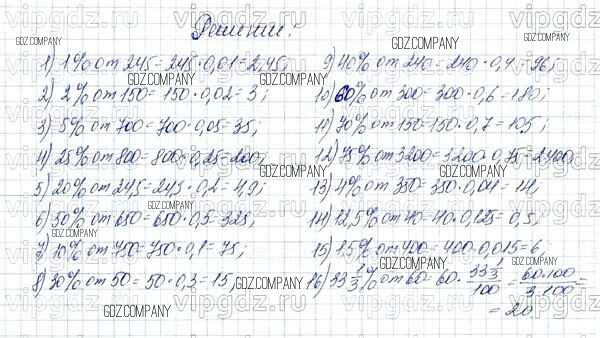 Решение:
1) 1% от 245 = 245 · 0,01 = 2,45;
2) 2% от 150 = 150 · 0,02 = 3;
3) 5% от 700 = 700 · 0,05 = 35;
4) 25% от 800 = 800 · 0,25 = 200;
5) 20% от 24,5 = 24,5 · 0,2 = 4,9;
6) 50% от 650 = 650 · 0,5 = 325;
7) 10% от 750 = 750 · 0,1 = 75;
8) 30% от 50 = 50 · 0,3 = 15;
9) 40% от 240 = 240 · 0,4 = 96;
10) 60% от 300 = 300 · 0,6 = 180;
11) 70% от 150 = 150 · 0,7 = 105;
12) 75% от 3200 = 3200 · 0,75 = 2400
13) 4% от 350 = 350 · 0,04 = 14,
14) 12,5% от 40 = 40 · 0,125 = 0,5;
15) 1,5% от 400 = 400 · 0,015 = 6;
16) 33 1/3% от 60 = 60 · 33 1/3 / 100 = 60·100 / 3·100 =
= 20
GDZ.COMPANY
GDZ.COMPANY
GDZ.COMPANY
GDZ.COMPANY
GDZ.COMPANY
GDZ.COMPANY
GDZ.COMPANY
GDZ.COMPANY
GDZ.COMPANY
GDZ.COMPANY
GDZ.COMPANY
GDZ.COMPANY
vipgdz.ru
vipgdz.ru
vipgdz.ru
vipgdz.ru